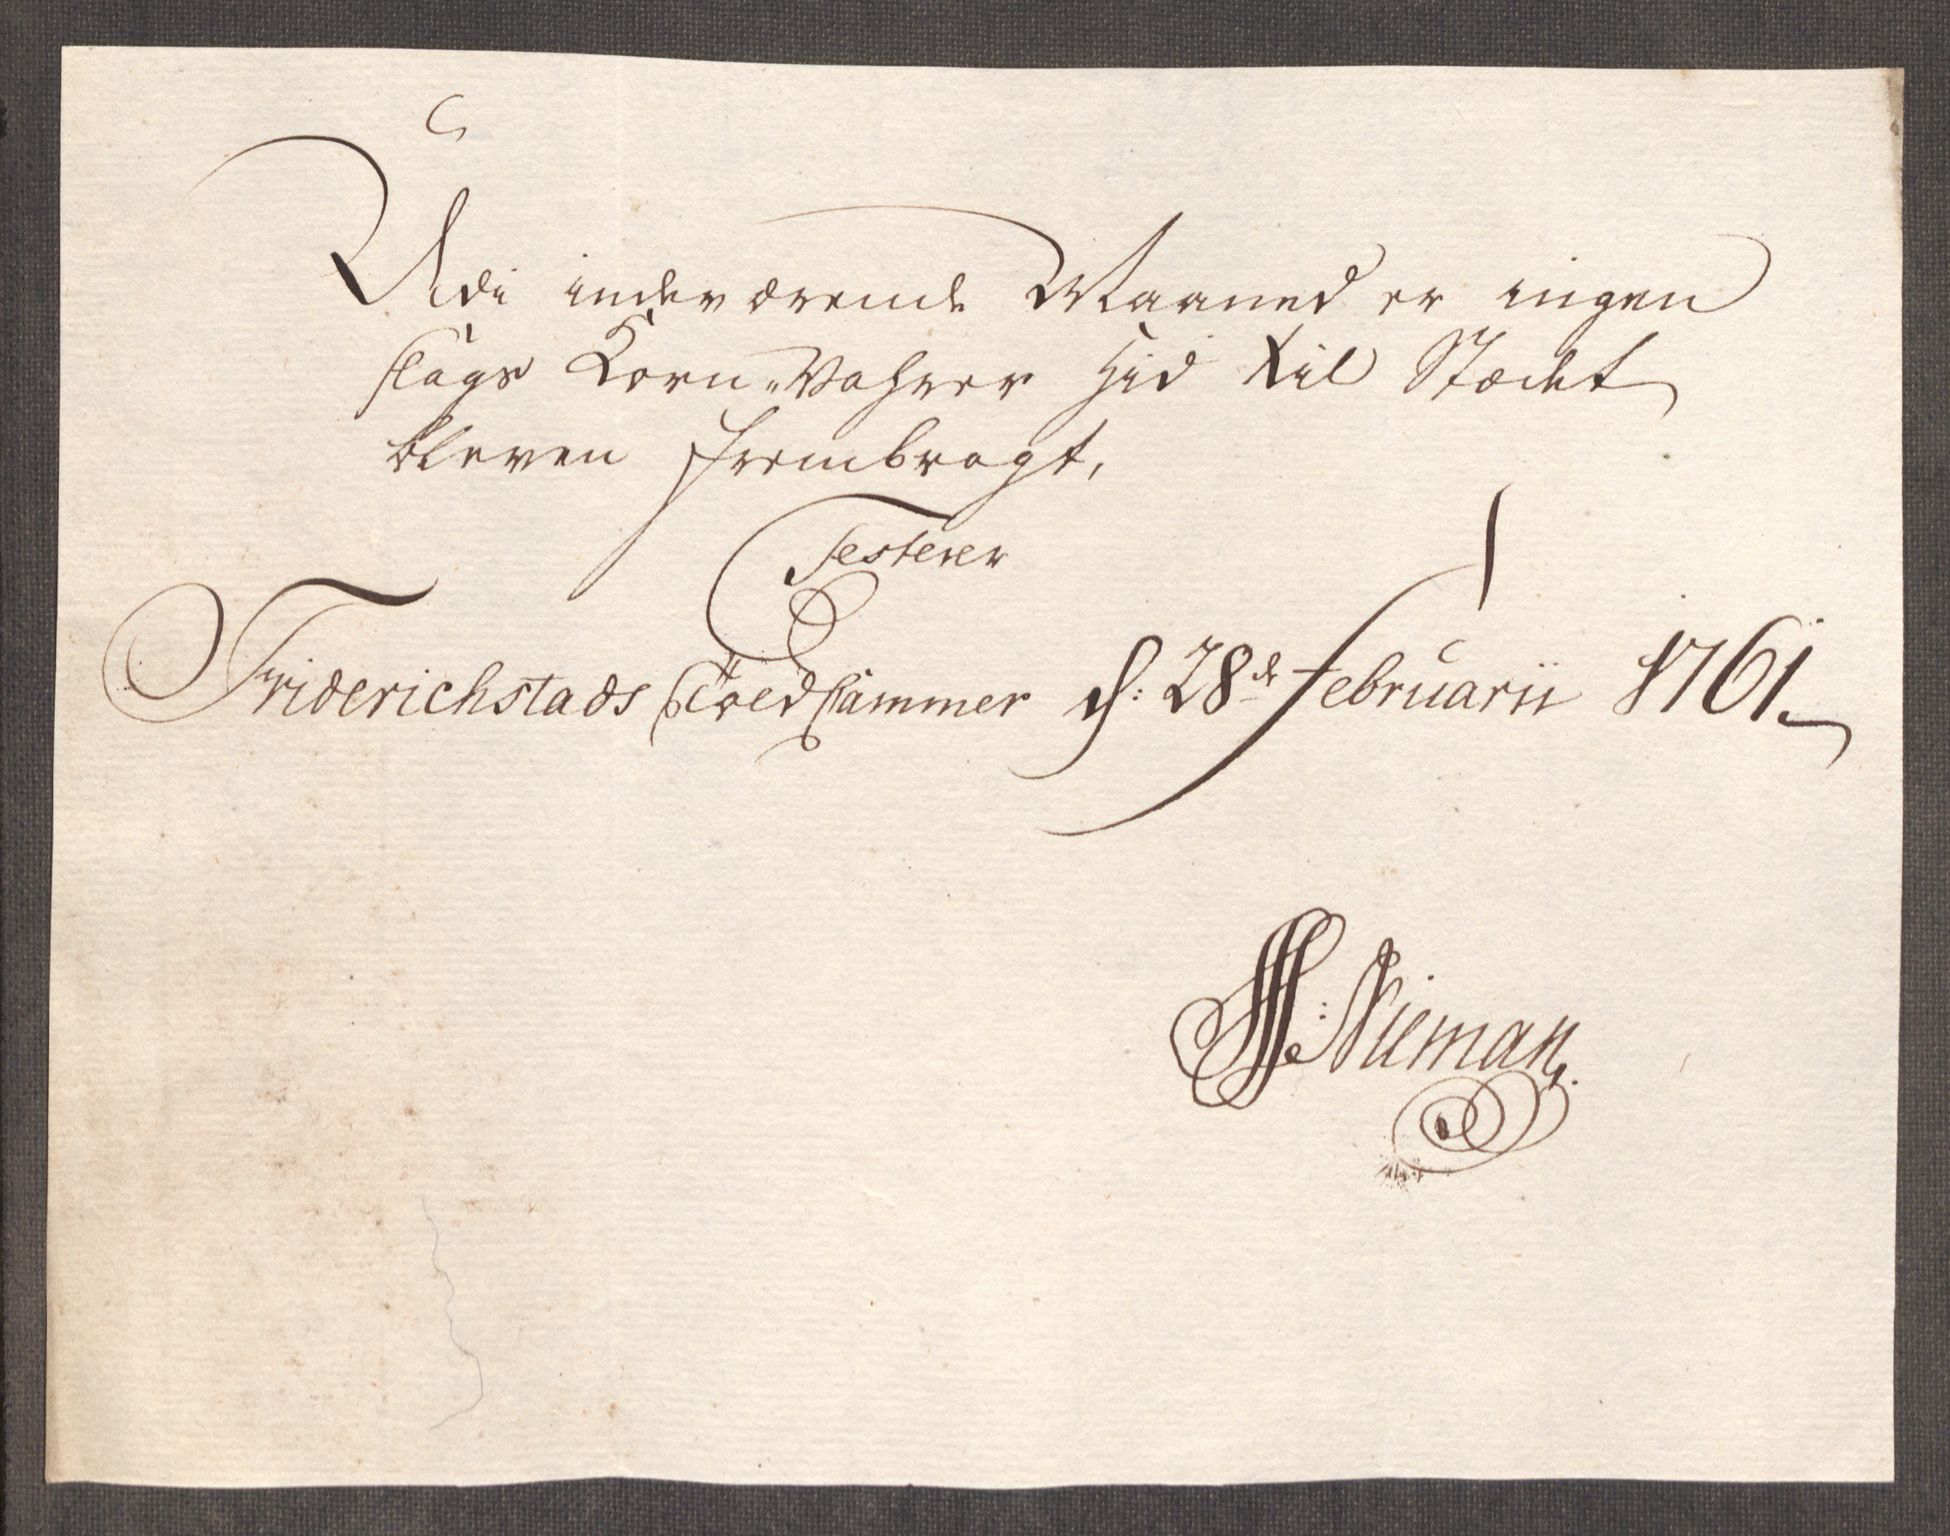 Udi indeværende Maaned er ingen
slags Korn-Vahrer hid til Stædet
bleven frembragt,
Testerer
Friderichstads Toldkammer d: 28de Februarii 1761.
Nieman